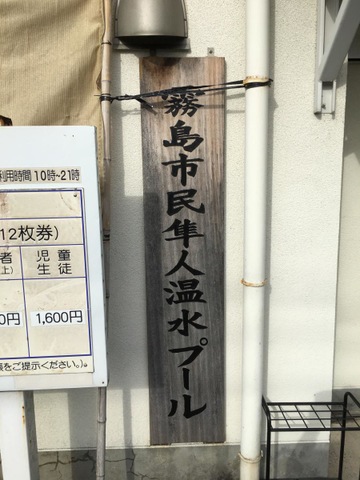 霧島市民隼人温水プール
利用時間 10時~21時
12枚券)
者 児童
上) 生徒
0円 1,600円
をご提示ください。)。